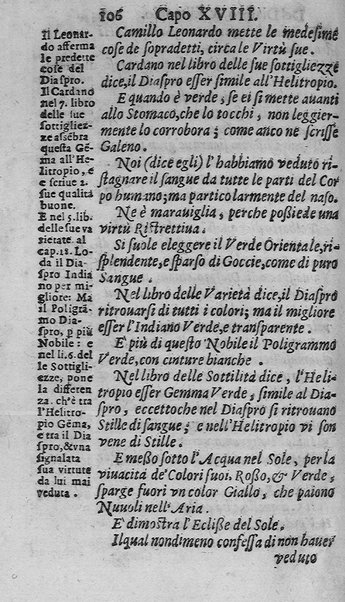 106 Capo XVIII.
Il Leonar-
do afferma
le predette
cose del
Diaspro.
Il Cardano
nel 7. libro
delle sue
sottigliez-
ze assēbra
questa Gē-
ma all'He-
litropio, e
e scriue 2.
sue qualità
buone.
E nel 5. lib.
delle sue va
rietate. al
cap. 18. Lo-
da il Dia-
spro India
no per mi-
gliore: Ma
il Poligrā-
mo Dia-
spro, ò più
Nobile: e
nel li. 6. del
le Sottigli-
ezze, pone
la differen
za. ch'è tra
l'Helitro-
pio Gēma,
e tra il Dia
spro, & vna
signalata
sua virtute
da lui mai
veduta.
Camillo Leonardo mette le medesime
cose de sopradetti, circa le Virtù sue.
Cardano nel libro delle sue sottigliezze
dice, il Diaspro esser simile all'Helitropio.
E quando è verde, se ei si mette auanti
allo Stomaco, che lo tocchi, non leggier-
mente lo corrobora; come anco nè scrisse
Galeno.
Noi (dice egli) l'habbiamo veduto ri-
stagnare il sangue da tutte le parti del Cor
po humano; ma particolarmente del naso.
Ne è marauiglia, perche possiede una
virtù Ristrettiua.
Si suole eleggere il Verde Orientale, ri-
splendente, e sparso di Goccie, come di puro
Sangue.
Nel libro delle Varietà dice, il Diaspro
ritrouarsi di tutti i colori; ma il migliore
esser l'Indiano Verde, e transparente.
E più di questo Nobile il Poligrammo
Verde, con cinture bianche.
Nel libro delle Sottilità dice, l'Heli-
tropio esser Gemma Verde, simile al Dia-
spro, eccettoche nel Diaspro si ritrouano
Stille di sangue; e nell'Helitropio vi son
vene di Stille.
E messo sotto l'Acqua nel Sole, per la
viuacità de' Colori suoi. Rosso, & Verde,
sparge fuori vn color Giallo, che paiono
Nuuoli nell'Aria.
E dimostra l'Eclisse del Sole.
Il qual nondimeno confessa di non hauer
veduto